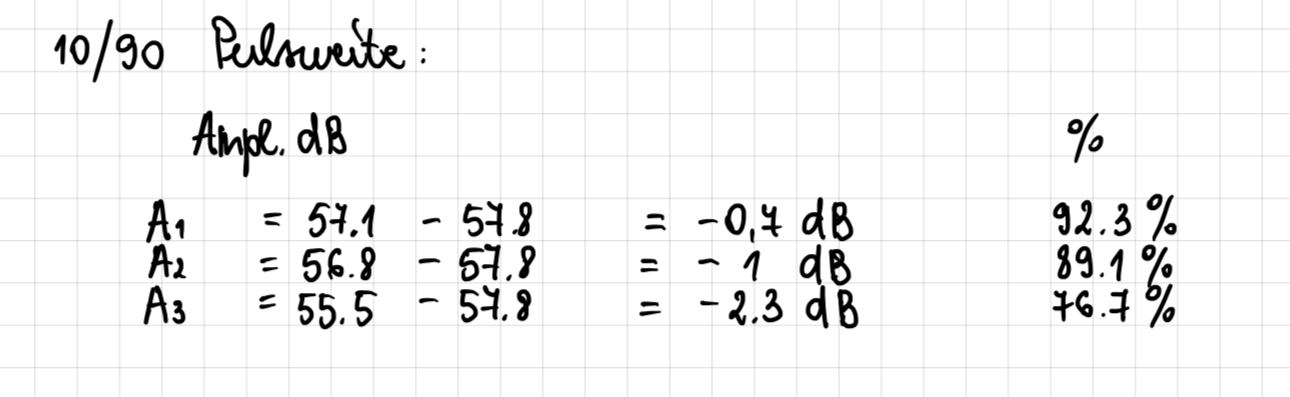 10/90 Pulsweite:
Ampl. dB %
A1 = 57.1 - 57.8 = -0,7 dB 92.3 %
A2 = 56.8 - 57.8 = - 1 dB 89.1 %
A3 = 55.5 - 57.8 = - 2.3 dB 76.7 %